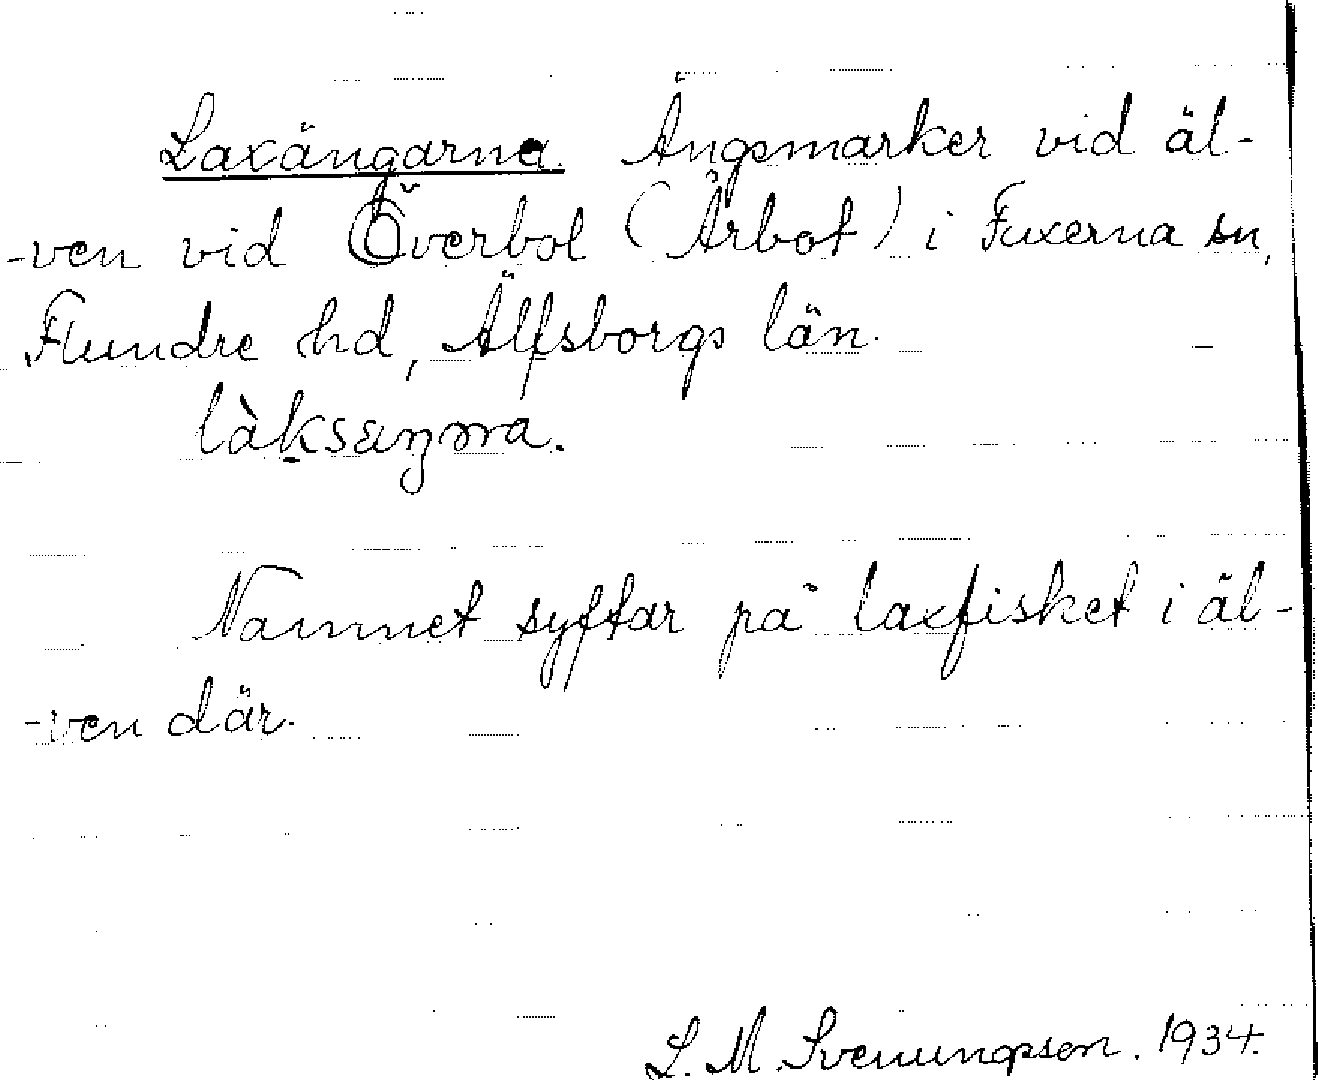 Laxängarna. Ängsmarker vid äl-
-ven vid Överbol (Årbot) i Fuxerna sn,
Flundre hd, Älfsborgs län.
làksæŋɳa.
Namnet syftar på laxfisket i äl-
-ven där.
L. M. Svenungsson. 1934.